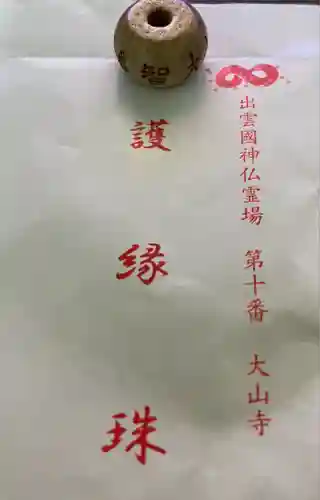 出雲國神仏霊場 第十番 大山寺
護縁珠
智